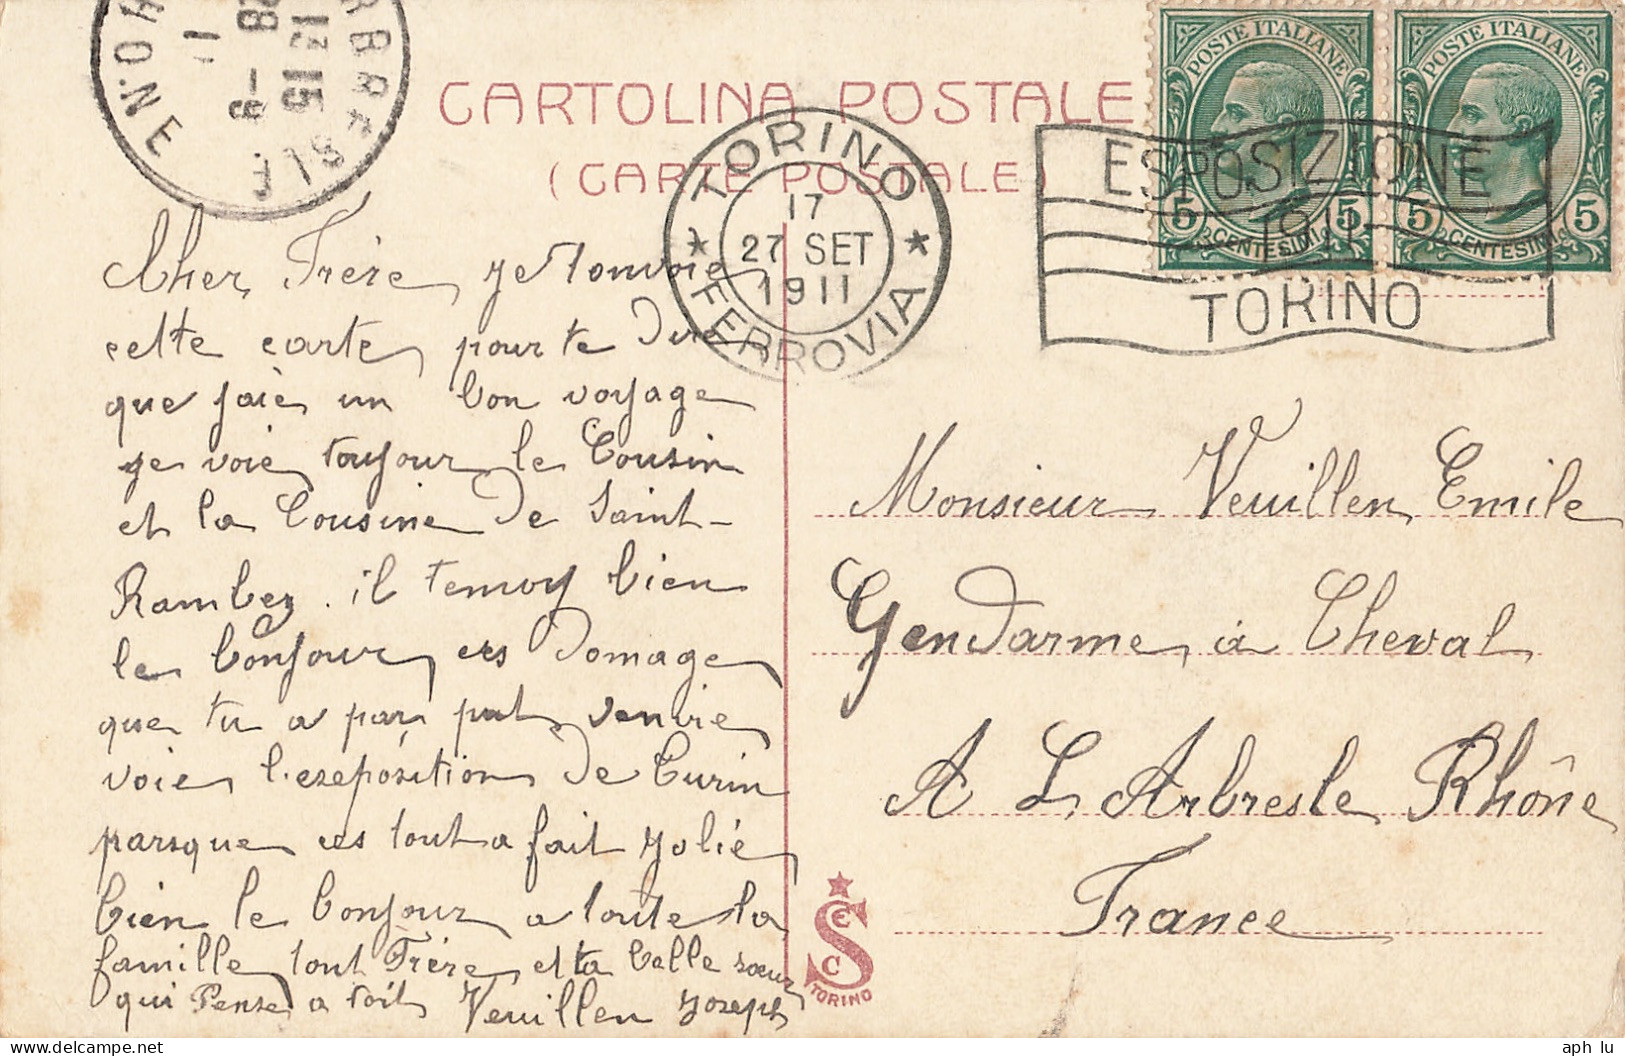 CARTOLINA POSTALE
(CARTE POSTALE)
ARBRESLE
RHÔNE
13 15
28 -9
11
TORINO
17
27 SET
1911
FERROVIA
POSTE ITALIANE
5 CENTESIMI 5
POSTE ITALIANE
5 CENTESIMI 5
ESPOSIZIONE
1911
TORINO
Cher Frère je tonvoie
cette carte pour te dire
que jaie un bon voyage
je voie toujour le Cousin
et la Cousine de Saint-
Rambez. il temvoy bien
le bonjour ces domage
que tu a pas put venire
voie l'exeposition de Turin
parsque ces tout a fait jolie
bien le bonjour a toute la
famille tout Frère et ta belle soeur
qui Pense a toit Veuillen Joseph
Monsieur Veuillen Emile
Gendarme à Cheval
A L Arbresle Rhône
France
SEC
TORINO
aph lu